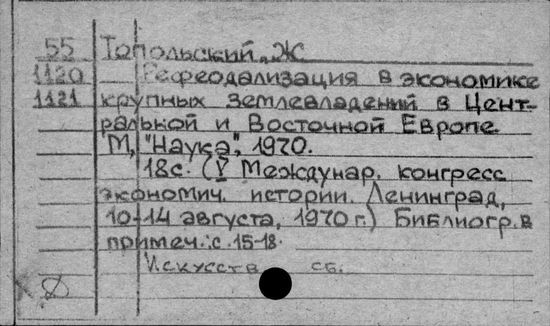 55 Топольский, Ж
1120 Рефеодализация в экономике
1121 крупных землевладений в Цент-
ральной и Восточной Европе.
М, "Наука", 1970.
18с. (V Междунар. конгресс
экономич. истории. Ленинград,
10-14 августа, 1970 г.) Библиогр. в
примеч.: с. 15-18.
Искусств сб.